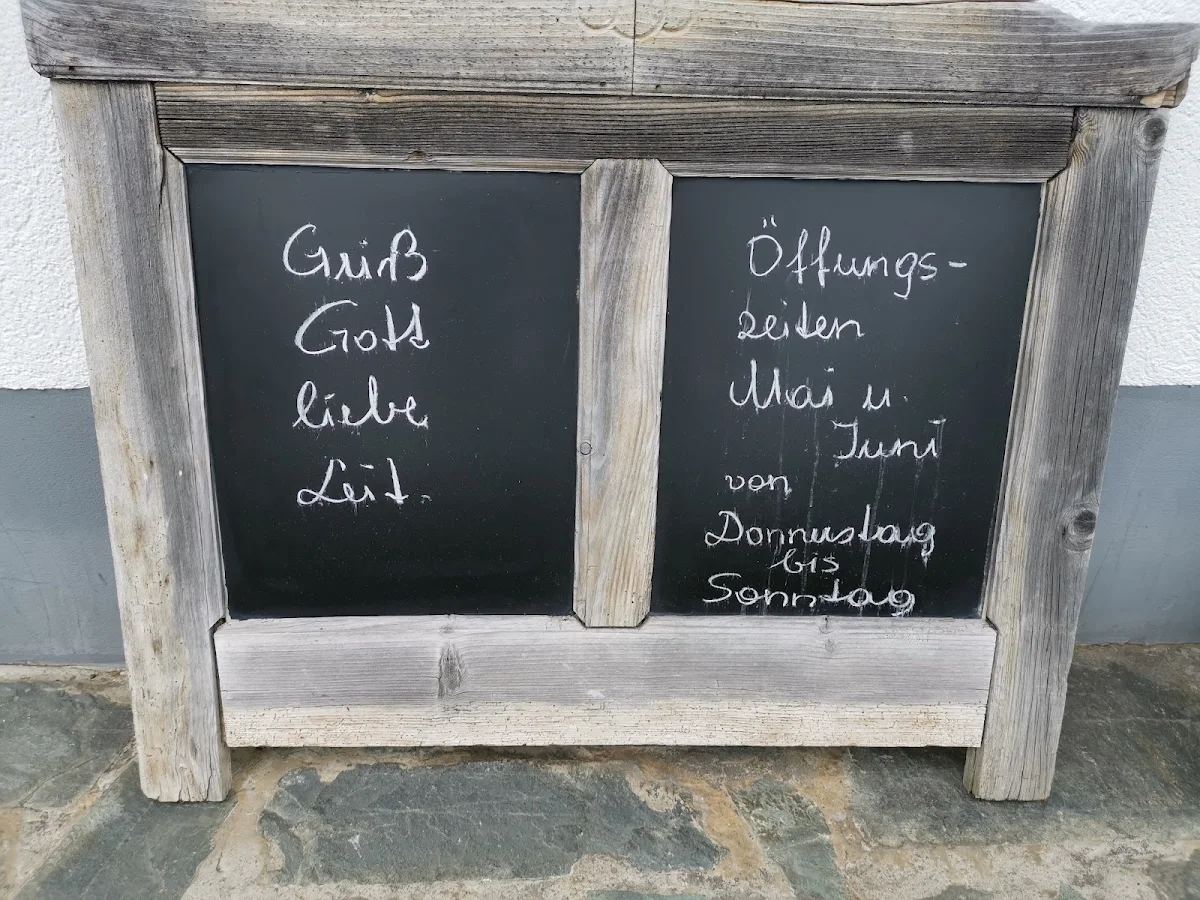 Grüß
Gott
liebe
Leit.
Öffungs-
zeiten
Mai u.
Juni
von
Donnustag
bis
Sonntag